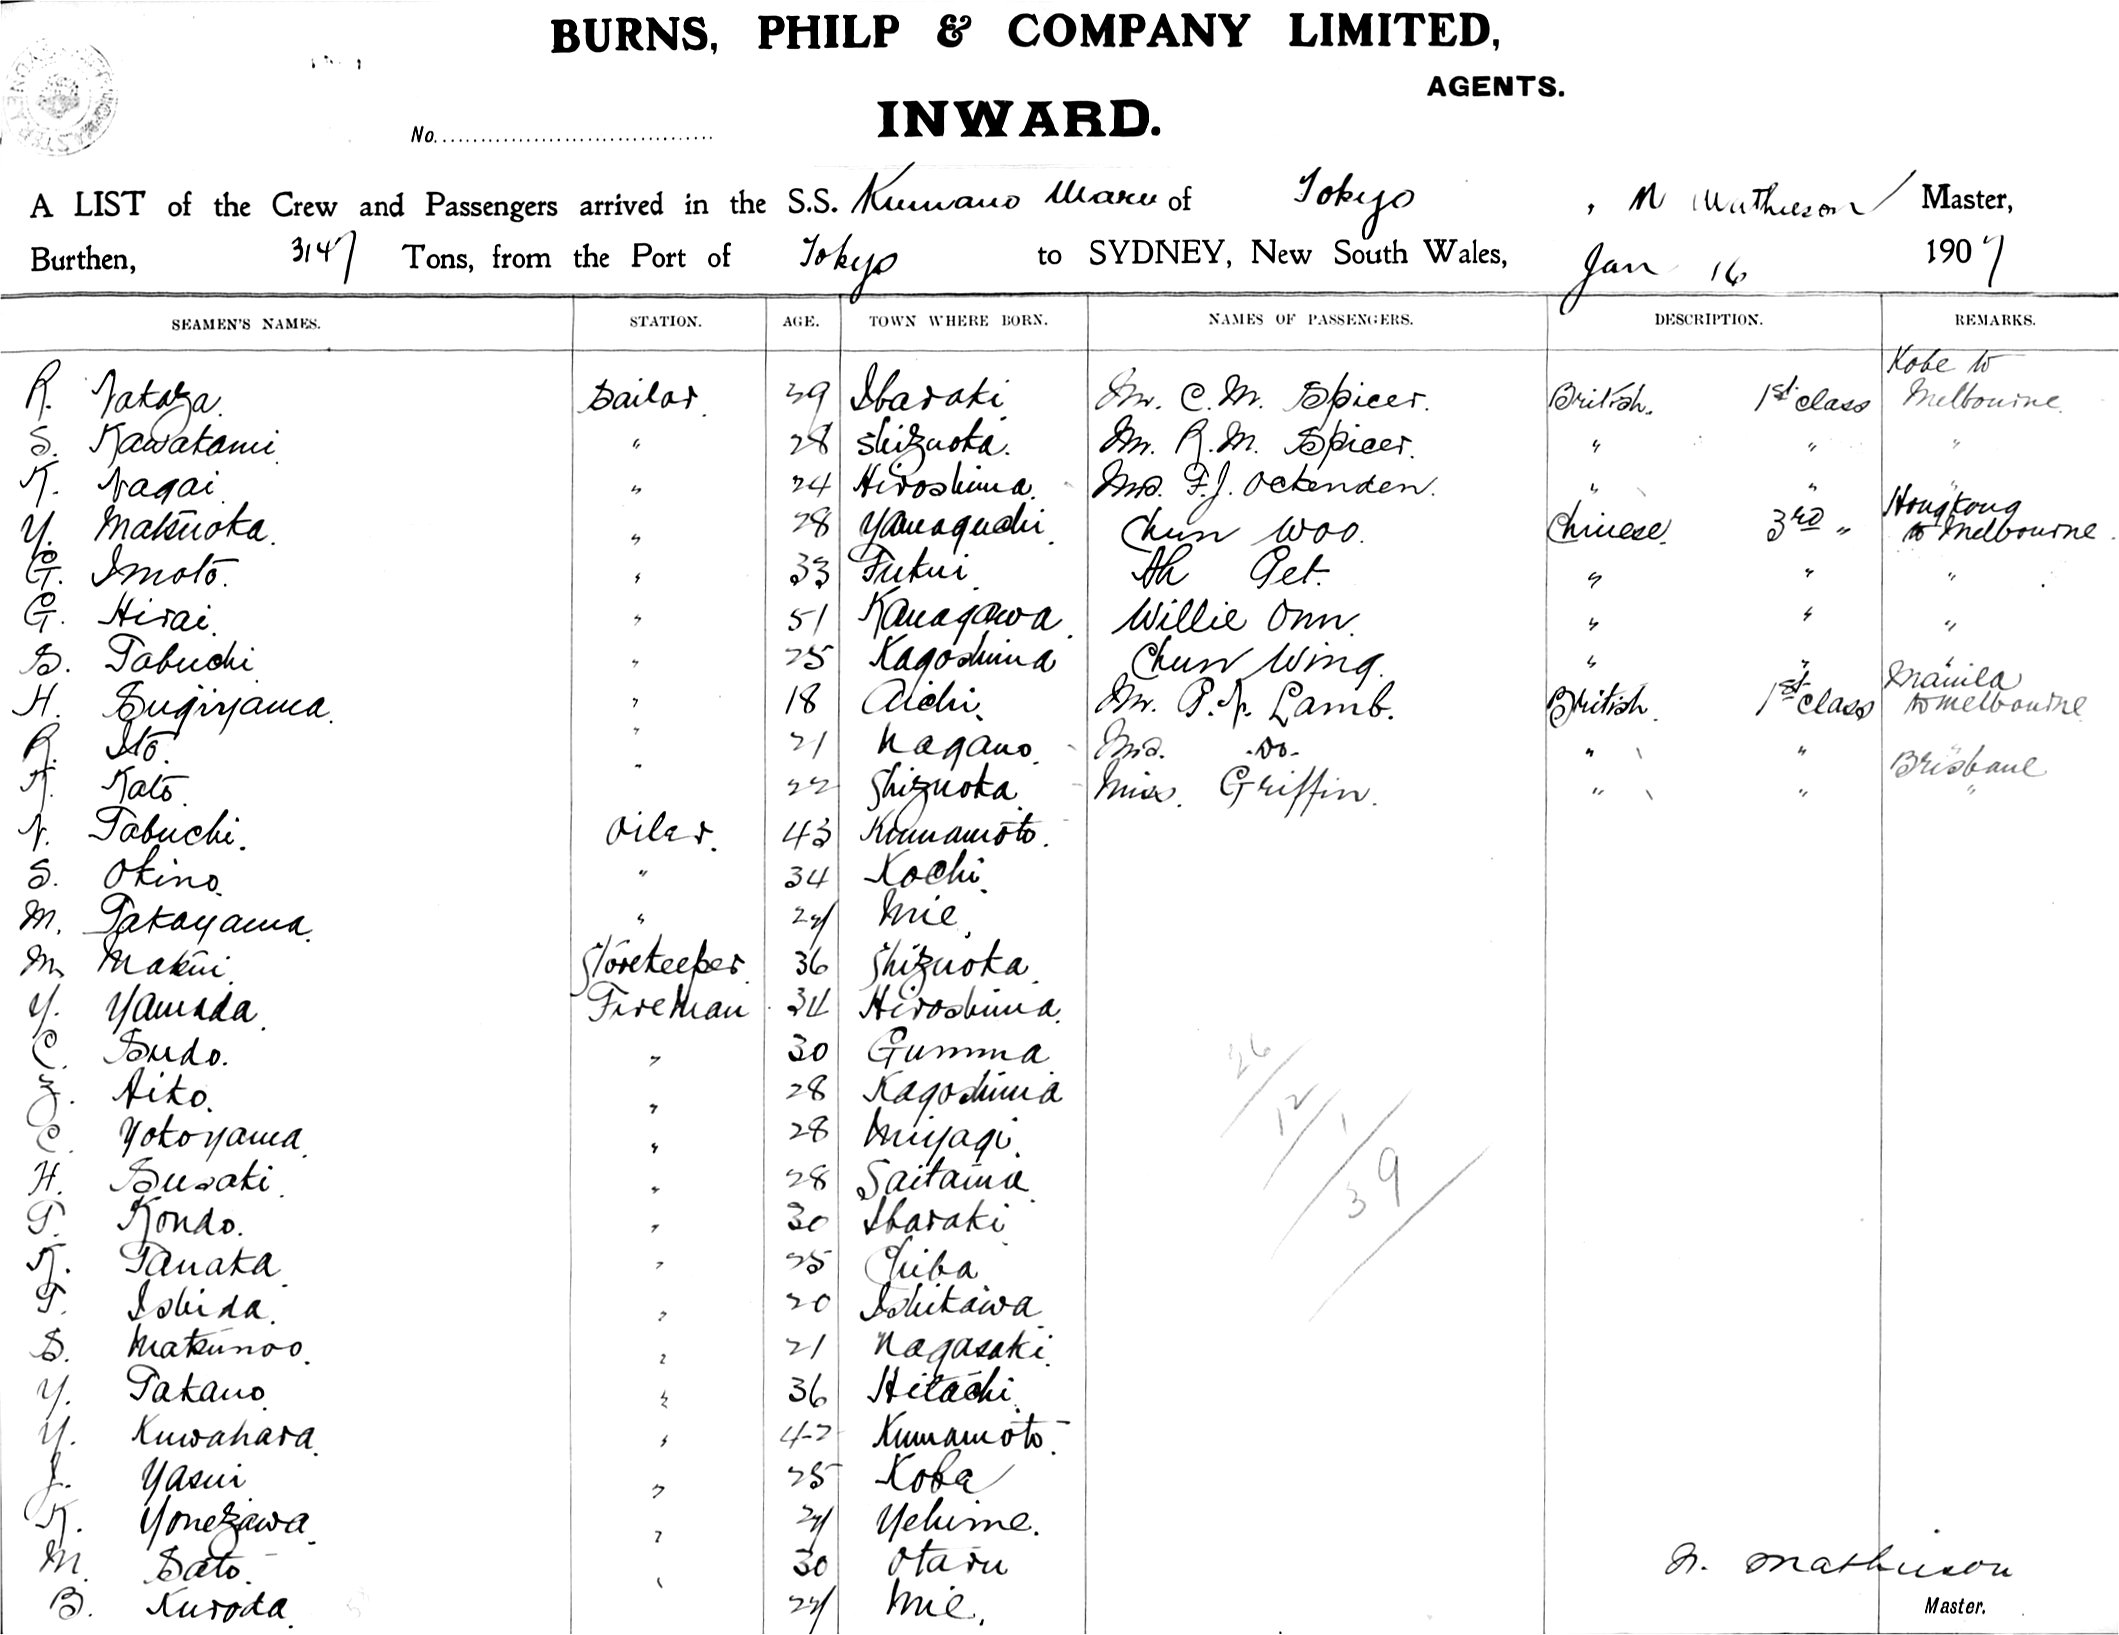 BURNS, PHILP & COMPANY LIMITED,
AGENTS.
INWARD.
No.
A LIST of the Crew and Passengers arrived in the S.S. Kumano Maru of Tokyo, M Mathieson Master,
Burthen, 3147 Tons, from the Port of Tokyo to SYDNEY, New South Wales, Jan 16 1907
SEAMEN'S NAMES. STATION. AGE. TOWN WHERE BORN. NAMES OF PASSENGERS. DESCRIPTION. REMARKS.
Kobe to
R. Sailor. 39 Ibaraki Mr. C. M. Spicer. British. 1st class Melbourne
S. Kawakami " 28 Shizuoka. Mr. R. M. Spicer. " " "
K. Nagai " 24 Hiroshima. Mrs. F. J. Ockenden. " " "
Hongkong
Y. Matsuoka. " 28 Yamaguchi Chun Woo. Chinese. 3rd " to Melbourne
G. Imoto. " 33 Fukui Ah Get. " " "
G. Hirai. " 51 Kanagawa. Willie Onn. " " "
S. Tabuchi " 25 Kagoshima Chun Wing. " " "
Manila
H. Sugiyama. " 18 Aichi. Mr. P. N. Lamb. British. 1st class to Melbourne
R. Ito. " 21 Nagano. Mrs. -Do- " " "
Brisbane
K. Kato. " 22 Shizuoka. Miss. Griffin. " " "
N. Tabuchi. Oiler. 43 Kumamoto.
S. Okino. " 34 Kochi.
M. Takayama. " 27 Mie.
M. Matsui Storekeeper 36 Shizuoka.
Y. Yamada. Fireman 34 Hiroshima.
C. Sudo. " 30 Gumma
Z. Aiko. " 28 Kagoshima
C. Yokoyama. " 28 Miyagi.
H. Susaki. " 28 Saitama.
T. Kondo. " 30 Ibaraki
K. Tanaka " 25 Chiba
T. Ishida. " 20 Ishikawa
S. Matsunoo. " 21 Nagasaki.
Y. Takano. " 36 Hitachi.
Y. Kuwahara. " 42 Kumamoto.
J. Yasui " 25 Kobe
K. Yonezawa. " 27 Yehime.
M. Sato. " 30 Otaru
B. Kuroda. 27 Mie.
26/12/1/39
N. Mathieson
Master.